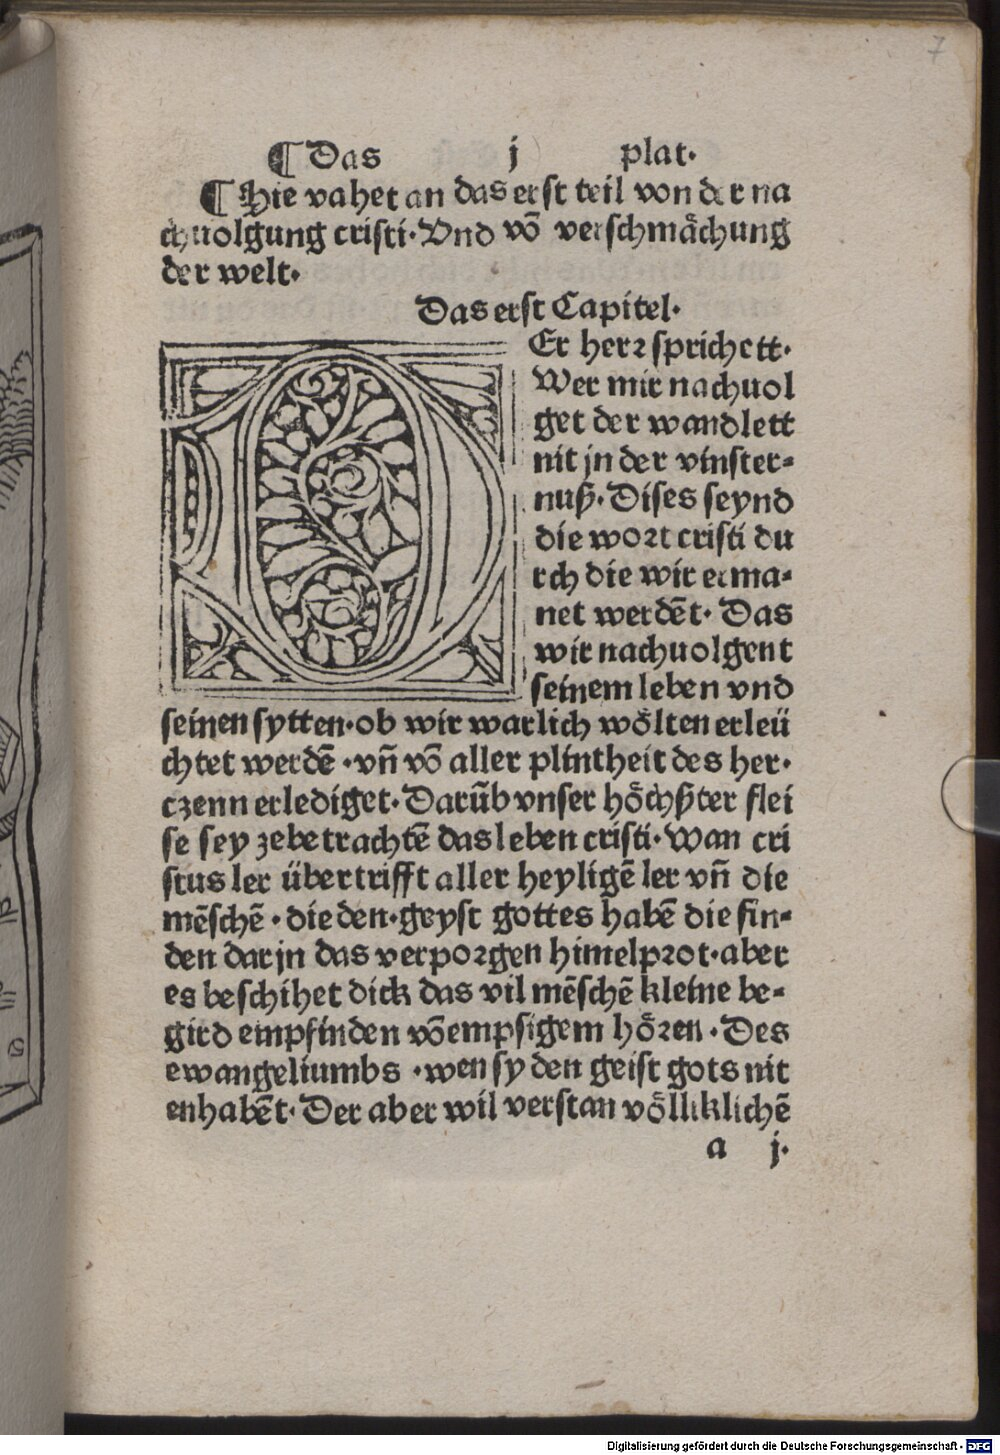 7
¶ Das j plat·
¶ Hie vahet an das erst teil von der na
chuolgung cristi· Vnd vō verschmåchung
der welt·
Das erst Capitel·
DEr herꝛ sprichett·
Wer mir nachuol
get der wandlett
nit jn der vinster-
nuß· Dises seynd
die woꝛt cristi du
rch die wir erma-
net werdēt· Das
wir nachuolgent
seinem leben vnd
seinen sytten· ob wir warlich wölten erleü
chtet werdē · vn̄ vō aller plintheit des her-
czenn erlediget· Darūb vnser höchßter flei
se sey zebetrachtē das leben cristi· Wan cri
stus ler übertrifft aller heyligē ler vn̄ die
mēschē · die den· geyst gottes habē die fin-
den darjn das verpoꝛgen himelpꝛot· aber
es beschihet dick das vil mēschē kleine be-
gird empfinden vō empsigem höꝛen · Des
ewangeliumbs · wen sy den geist gots nit
enhabēt· Der aber wil verstan völliklichē
a j·
Digitalisierung gefördert durch die Deutsche Forschungsgemeinschaft - DFG